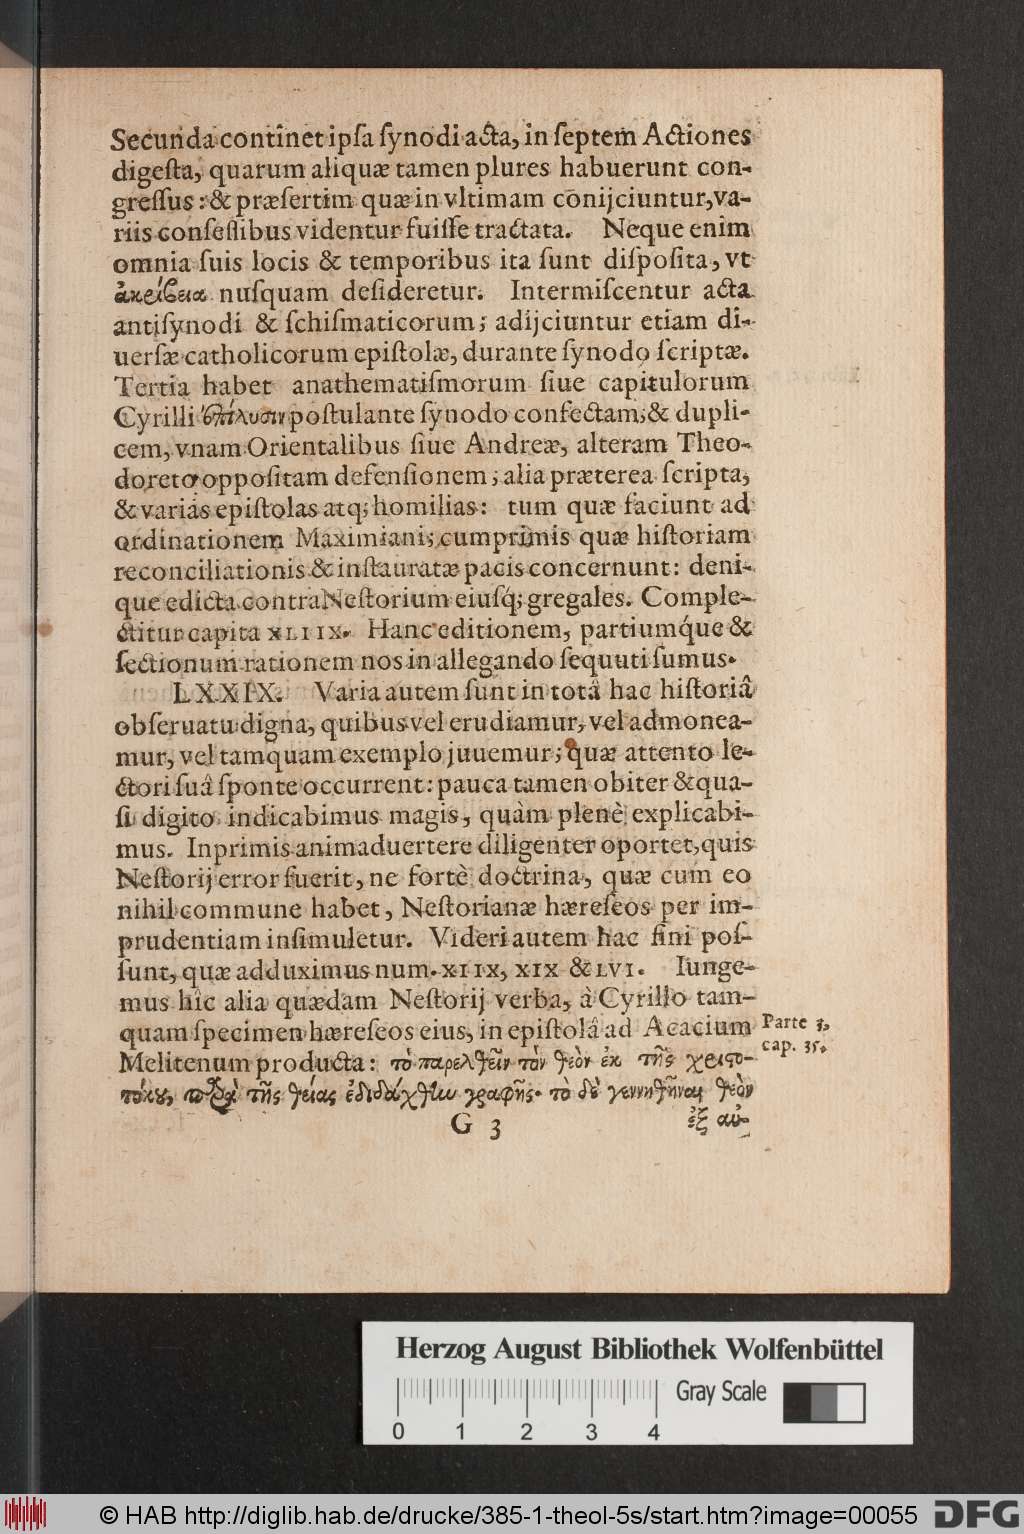 Secunda contînet ipſa ſynodi acta, in ſeptem Actiones
digeſta, quarum aliquæ tamen plures habuerunt con-
greſſus: & præſertim quæ in vltimam cōnijciuntur, va-
riis conſeſſibus videntur fuiſſe tractata. Neque enim
omnia ſuis locis & temporibus ita ſunt diſpoſita, vt
ἀκρίβεια nuſquam deſideretur. Intermiſcentur acta
antiſynodi & ſchiſmaticorum; adijciuntur etiam di-
uerſæ catholicorum epiſtolæ, durante ſynodo ſcriptæ.
Tertia habet anathematiſmorum ſiue capitulorum
Cyrilli ἐπίλυσιν poſtulante ſynodo confectam, & dupli-
cem, vnam Orientalibus ſiue Andreæ, alteram Theo-
doreto oppoſitam defenſionem; alia præterea ſcripta,
& varias epiſtolas atq; homilias: tum quæ faciunt ad
ordinationem Maximiani; cumprimis quæ hiſtoriam
reconciliationis & inſtauratæ pacis concernunt: deni-
que edicta contra Neſtorium eiuſq́; gregales. Comple-
ctitur capita XLIIX. Hanc editionem, partiumq́ue &
ſectionum rationem nos in allegando ſequuti ſumus.
LXXIX. Varia autem ſunt in totâ hac hiſtoriâ
obſeruatu digna, quibus vel erudiamur, vel admonea-
mur, vel tamquam exemplo juuemur; quæ attento le-
ctori ſuâ ſponte occurrent: pauca tamen obiter & qua-
ſi digito indicabimus magis, quàm plenè explicabi-
mus. Inprimis animaduertere diligenter oportet, quis
Neſtorij error fuerit, ne fortè doctrina, quæ cum eo
nihil commune habet, Neſtorianæ hæreſeos per im-
prudentiam inſimuletur. Videri autem hac fini poſ-
ſunt, quæ adduximus num. XIIX, XIX & LVI. Iunge-
mus hîc alia quædam Neſtorij verba, à Cyrillo tam-
quam ſpecimen hæreſeos eius, in epiſtolâ ad Acacium
Parte 3,
cap. 35.
Melitenum producta: τὸ παρελθεῖν τὸν θεὸν ἐκ τῆς χριστο-
τόκου, παρὰ τῆς θείας ἐδιδάχθην γραφῆς. τὸ δὲ γεννηθῆναι θεὸν
G 3
ἐξ αὐ-
Herzog August Bibliothek Wolfenbüttel
Gray Scale
0 1 2 3 4
© HAB http://diglib.hab.de/drucke/385-1-theol-5s/start.htm?image=00055
DFG